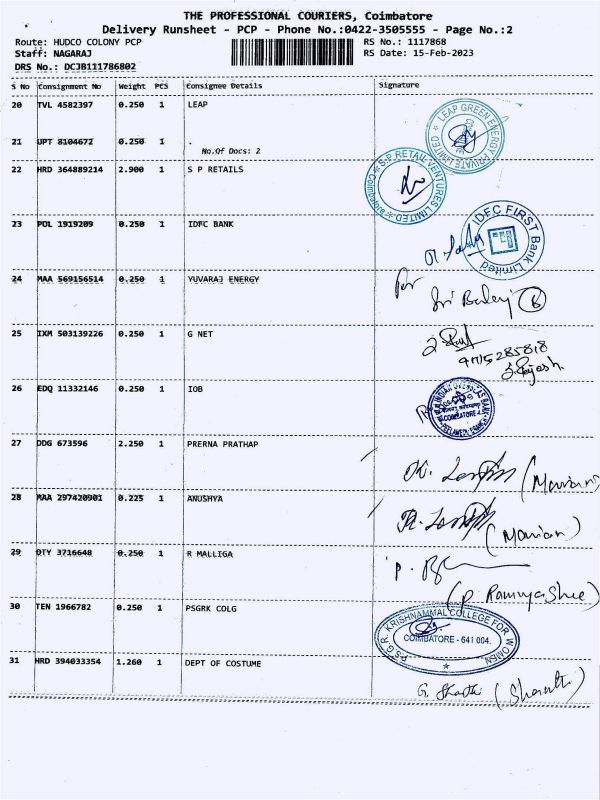 THE PROFESSIONAL COURIERS, Coimbatore
Delivery Runsheet - PCP - Phone No.:0422-3505555 - Page No.:2
Route: HUDCO COLONY PCP RS No.: 1117868
Staff: NAGARAJ RS Date: 15-Feb-2023
DRS No.: DCJB111786802
S No Consignment No Weight PCS Consignee Details Signature
20 TVL 4582397 0.250 1 LEAP
LEAP GREEN ENERGY PRIVATE LIMITED
21 UPT 8104672 0.250 1 .
No.Of Docs: 2
22 HRD 364889214 2.900 1 S P RETAILS
S.P RETAIL VENTURES LIMITED Coimbatore
23 POL 1919209 0.250 1 IDFC BANK
IDFC FIRST Bank Limited
24 MAA 569156514 0.250 1 YUVARAJ ENERGY
for
Sri Balaji
25 IXM 503139226 0.250 1 G NET
9715285818
26 EDQ 11332146 0.250 1 IOB
INDIAN OVERSEAS BANK
COIMBATORE-4
PEELAMEDU BRANCH
27 DDG 673596 2.250 1 PRERNA PRATHAP
28 MAA 297420901 0.225 1 ANUSHYA
29 DTY 3716648 0.250 1 R MALLIGA
(P. RamyaShee)
30 TEN 1966782 0.250 1 PSGRK COLG
P.S.G.R. KRISHNAMMAL COLLEGE FOR WOMEN
COIMBATORE - 641 004.
31 HRD 394033354 1.260 1 DEPT OF COSTUME